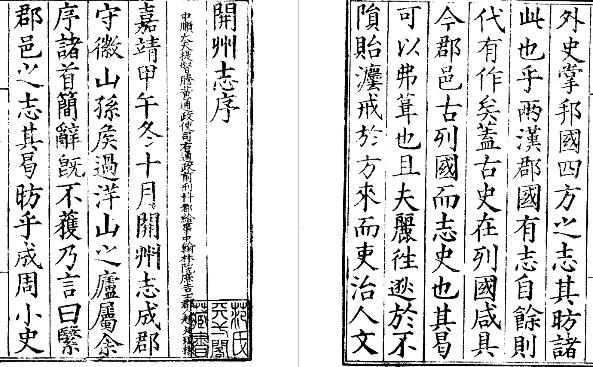 開州志序
中順大夫提督謄黃通政使司右通政前刑科都給事中翰林院庶吉士郡趙廷瑞撰
嘉靖甲午冬十月開州志成郡
守徽山孫矦過洋山之廬屬余
序諸首簡辭旣不獲乃言曰繄
郡邑之志其曷昉乎成周小史
范氏
天一閣
藏書
外史掌邦國四方之志其昉諸
此也乎兩漢郡國有志自餘則
代有作矣蓋古史在列國咸具
今郡邑古列國而志史也其曷
可以弗葺也且夫麗徃逖於不
隕貽灋戒於方來而吏治人文